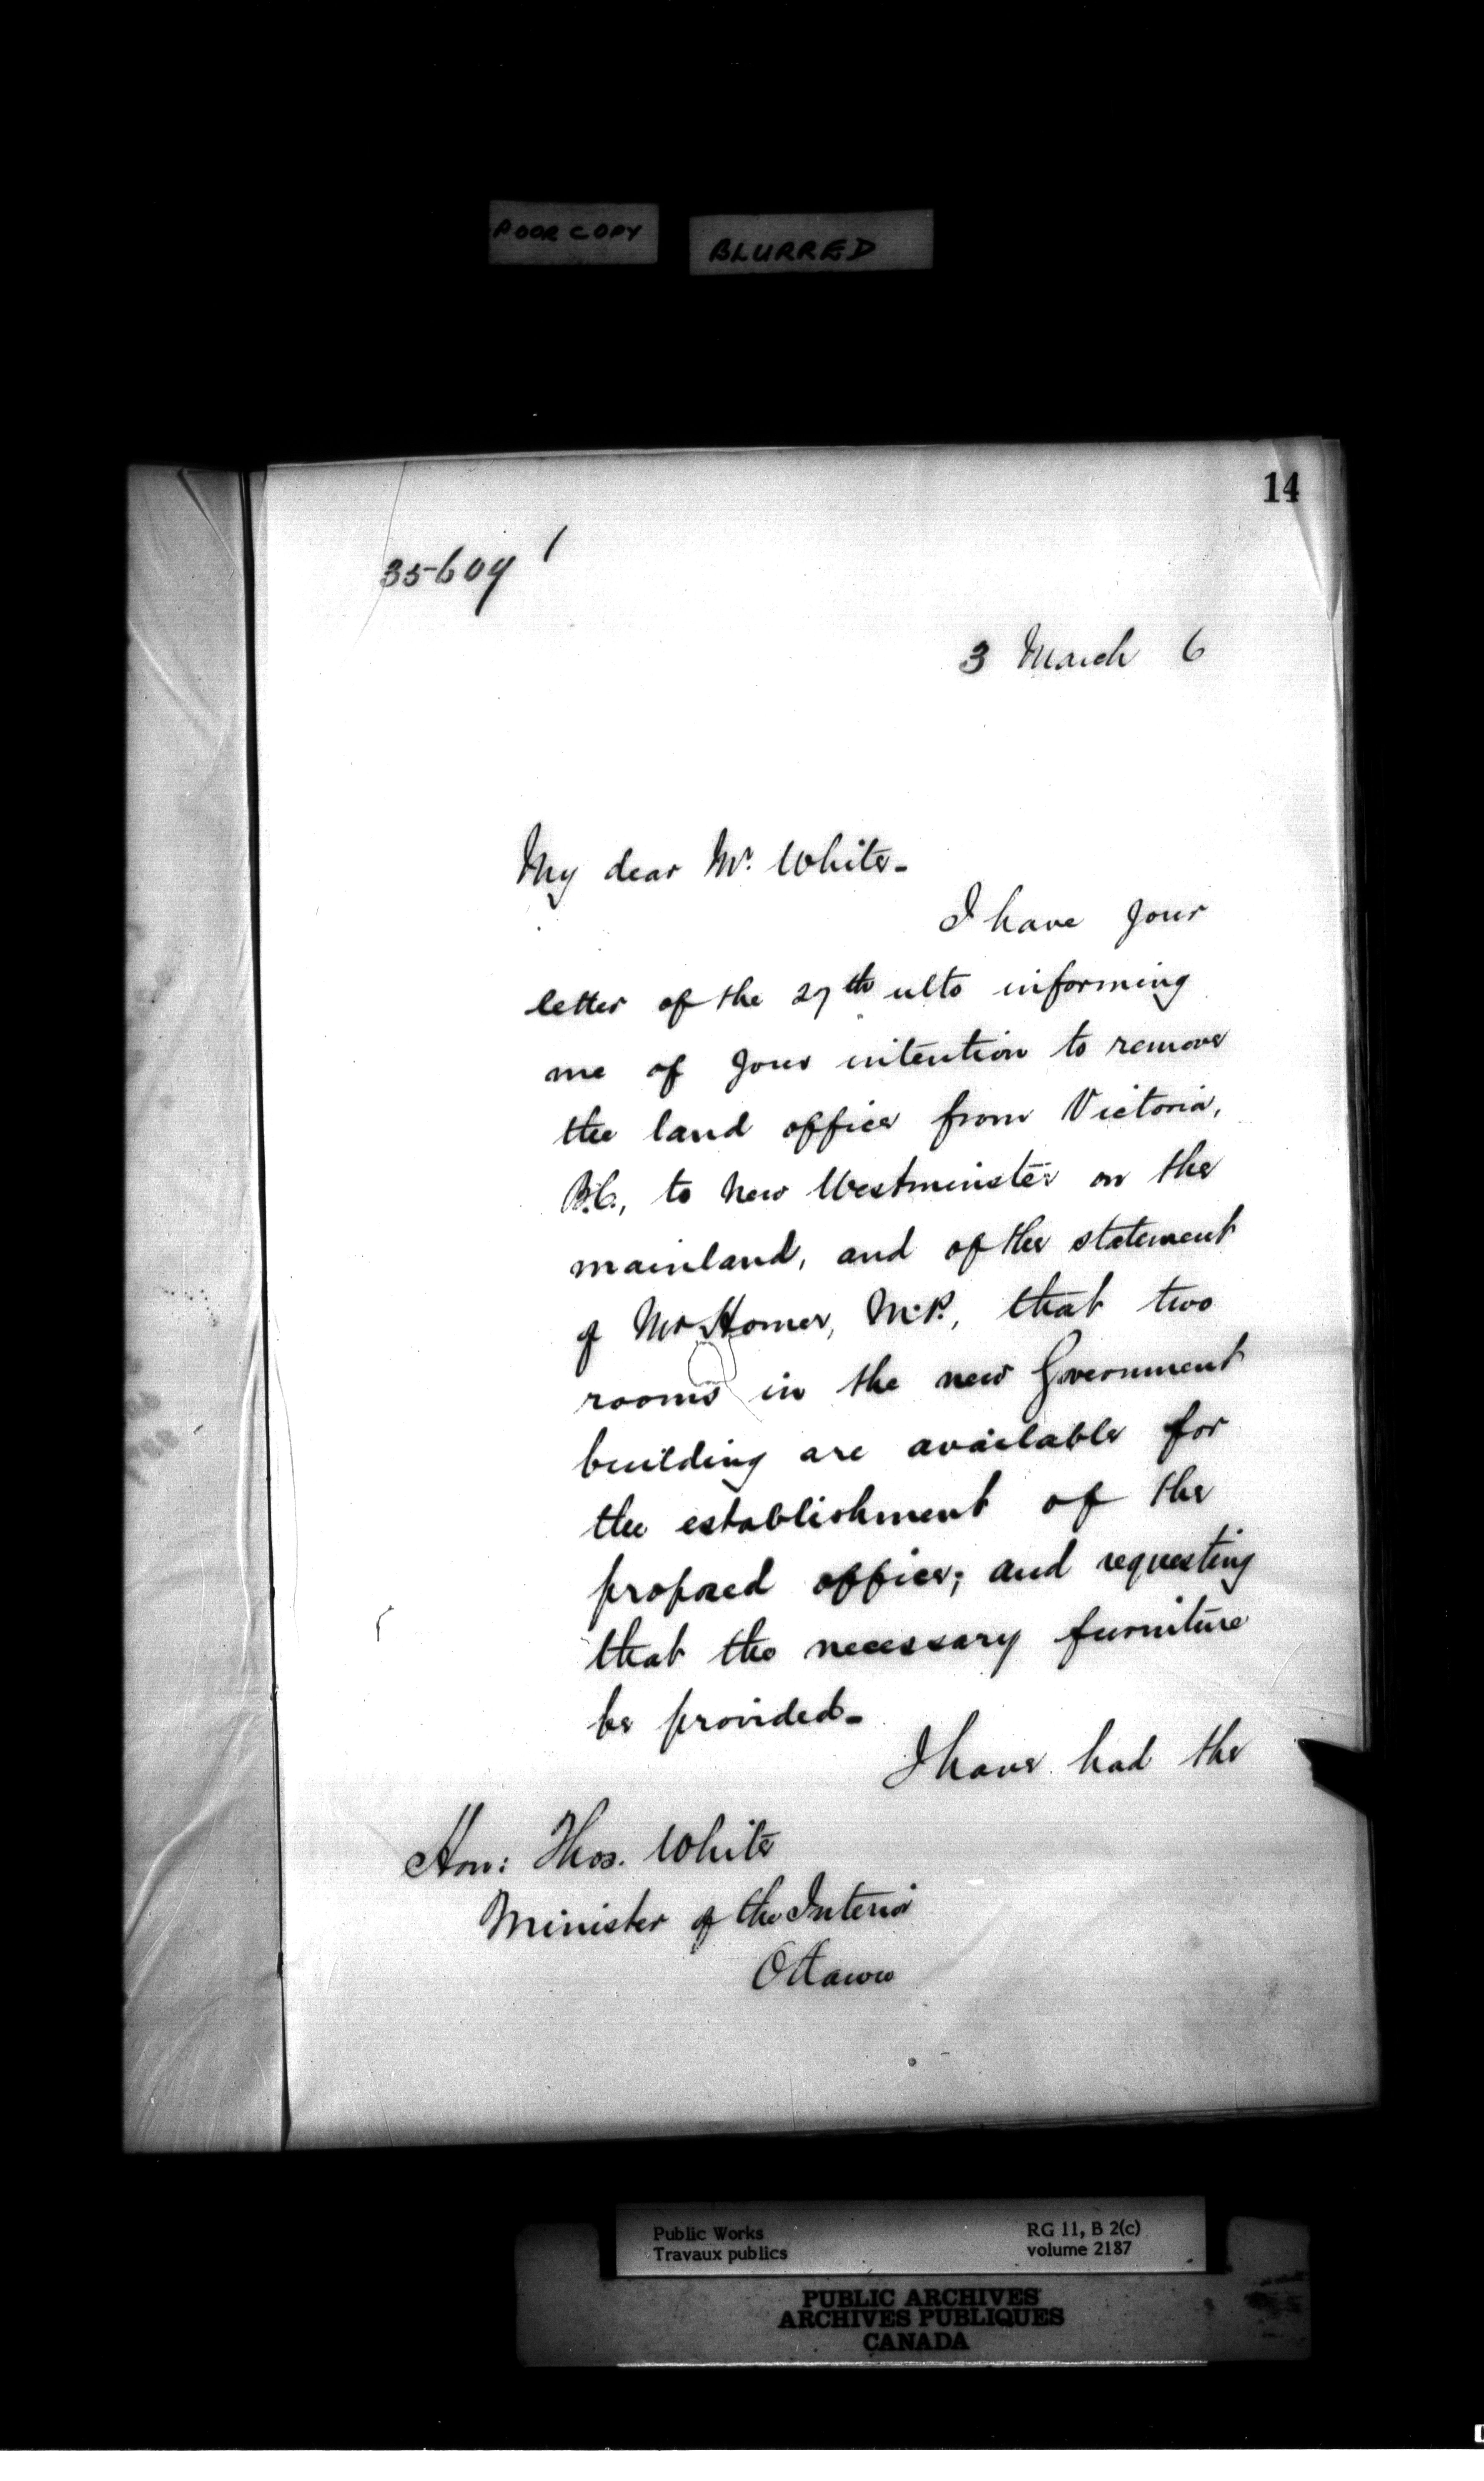 POOR COPY
BLURRED
14
35609 1
3 March 6
My dear Mr. White-
I have your
letter of the 27th ulto informing
me of your intention to remove
the land office from Victoria,
B.C., to New Westminster on the
mainland, and of the statement
of Mr Homer, M.P., that two
rooms in the new Government
building are available for
the establishment of the
proposed office; and requesting
that the necessary furniture
be provided-
I have had the
Hon: Thos. White
Minister of the Interior
Ottawa
Public Works
Travaux publics
RG 11, B 2(c)
volume 2187
PUBLIC ARCHIVES
ARCHIVES PUBLIQUES
CANADA